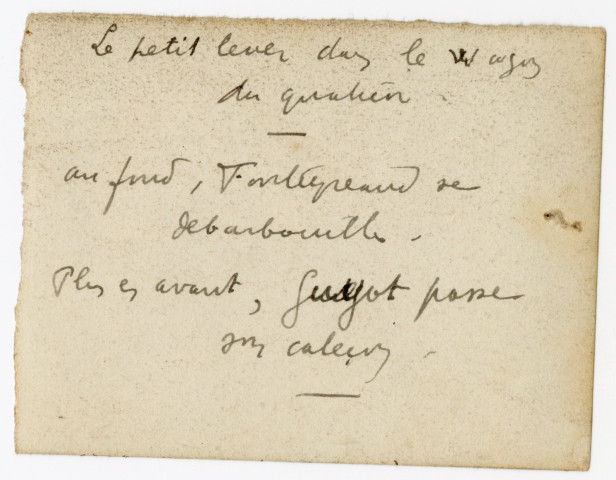 Le petit lever dans le wagon
du
au fond, se
débarbouille.
Plus en avant, Guyot passe
son caleçon.